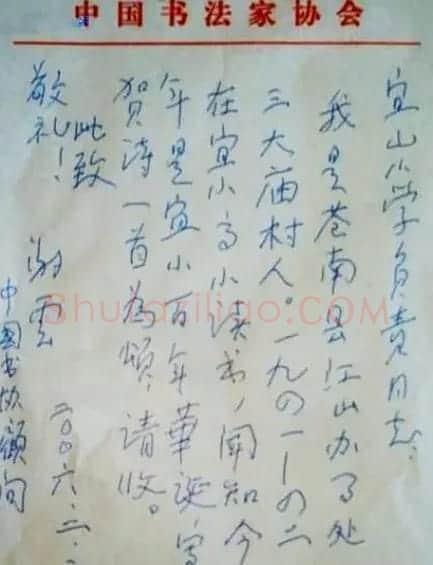 中国书法家协会
宜山小学负责同志:
我是苍南县江山办事处
三大庙村人。一九四一—四二
在宜小高小读书,闻知今
年是宜小百年华诞,写
贺诗一首为颂,请收。
此致
敬礼!
谢云
二00六.二.
中国书协顾问
Shufaziliao.COM